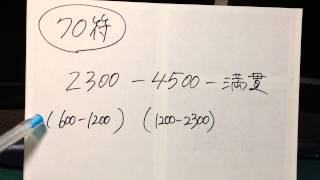 70符
2300-4500-満貫
(600-1200) (1200-2300)